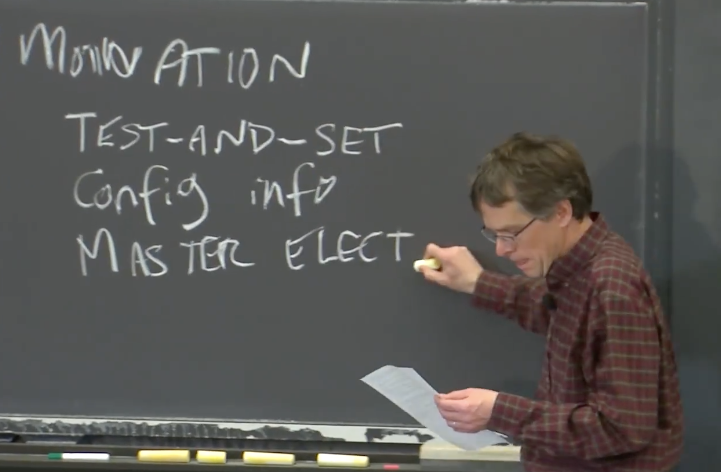 MOTIVATION
TEST-AND-SET
Config info
MASTER ELECT